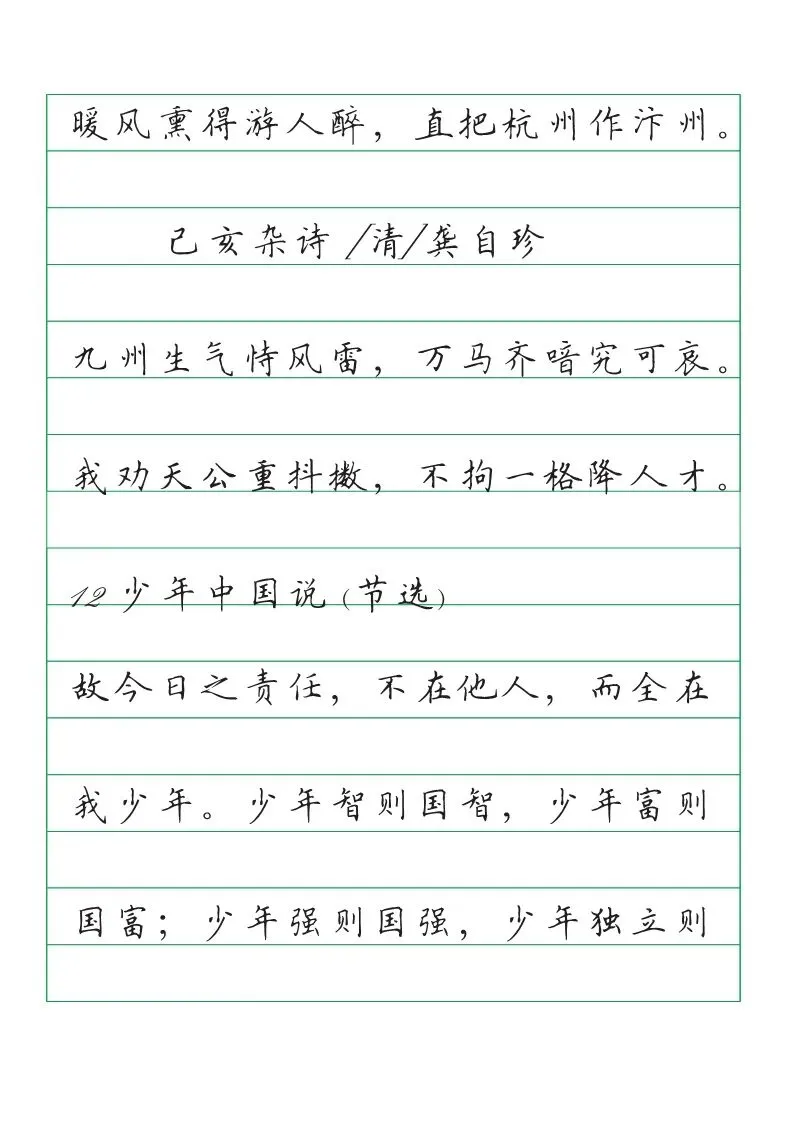 暖风熏得游人醉，直把杭州作汴州。
己亥杂诗/清/龚自珍
九州生气恃风雷，万马齐喑究可哀。
我劝天公重抖擞，不拘一格降人才。
12少年中国说(节选)
故今日之责任，不在他人，而全在
我少年。少年智则国智，少年富则
国富；少年强则国强，少年独立则